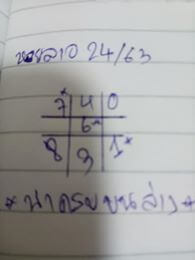 หวยลาว 24/63
7* 4 0
6*
8 3 1*
* น่าครบบนล่าง *